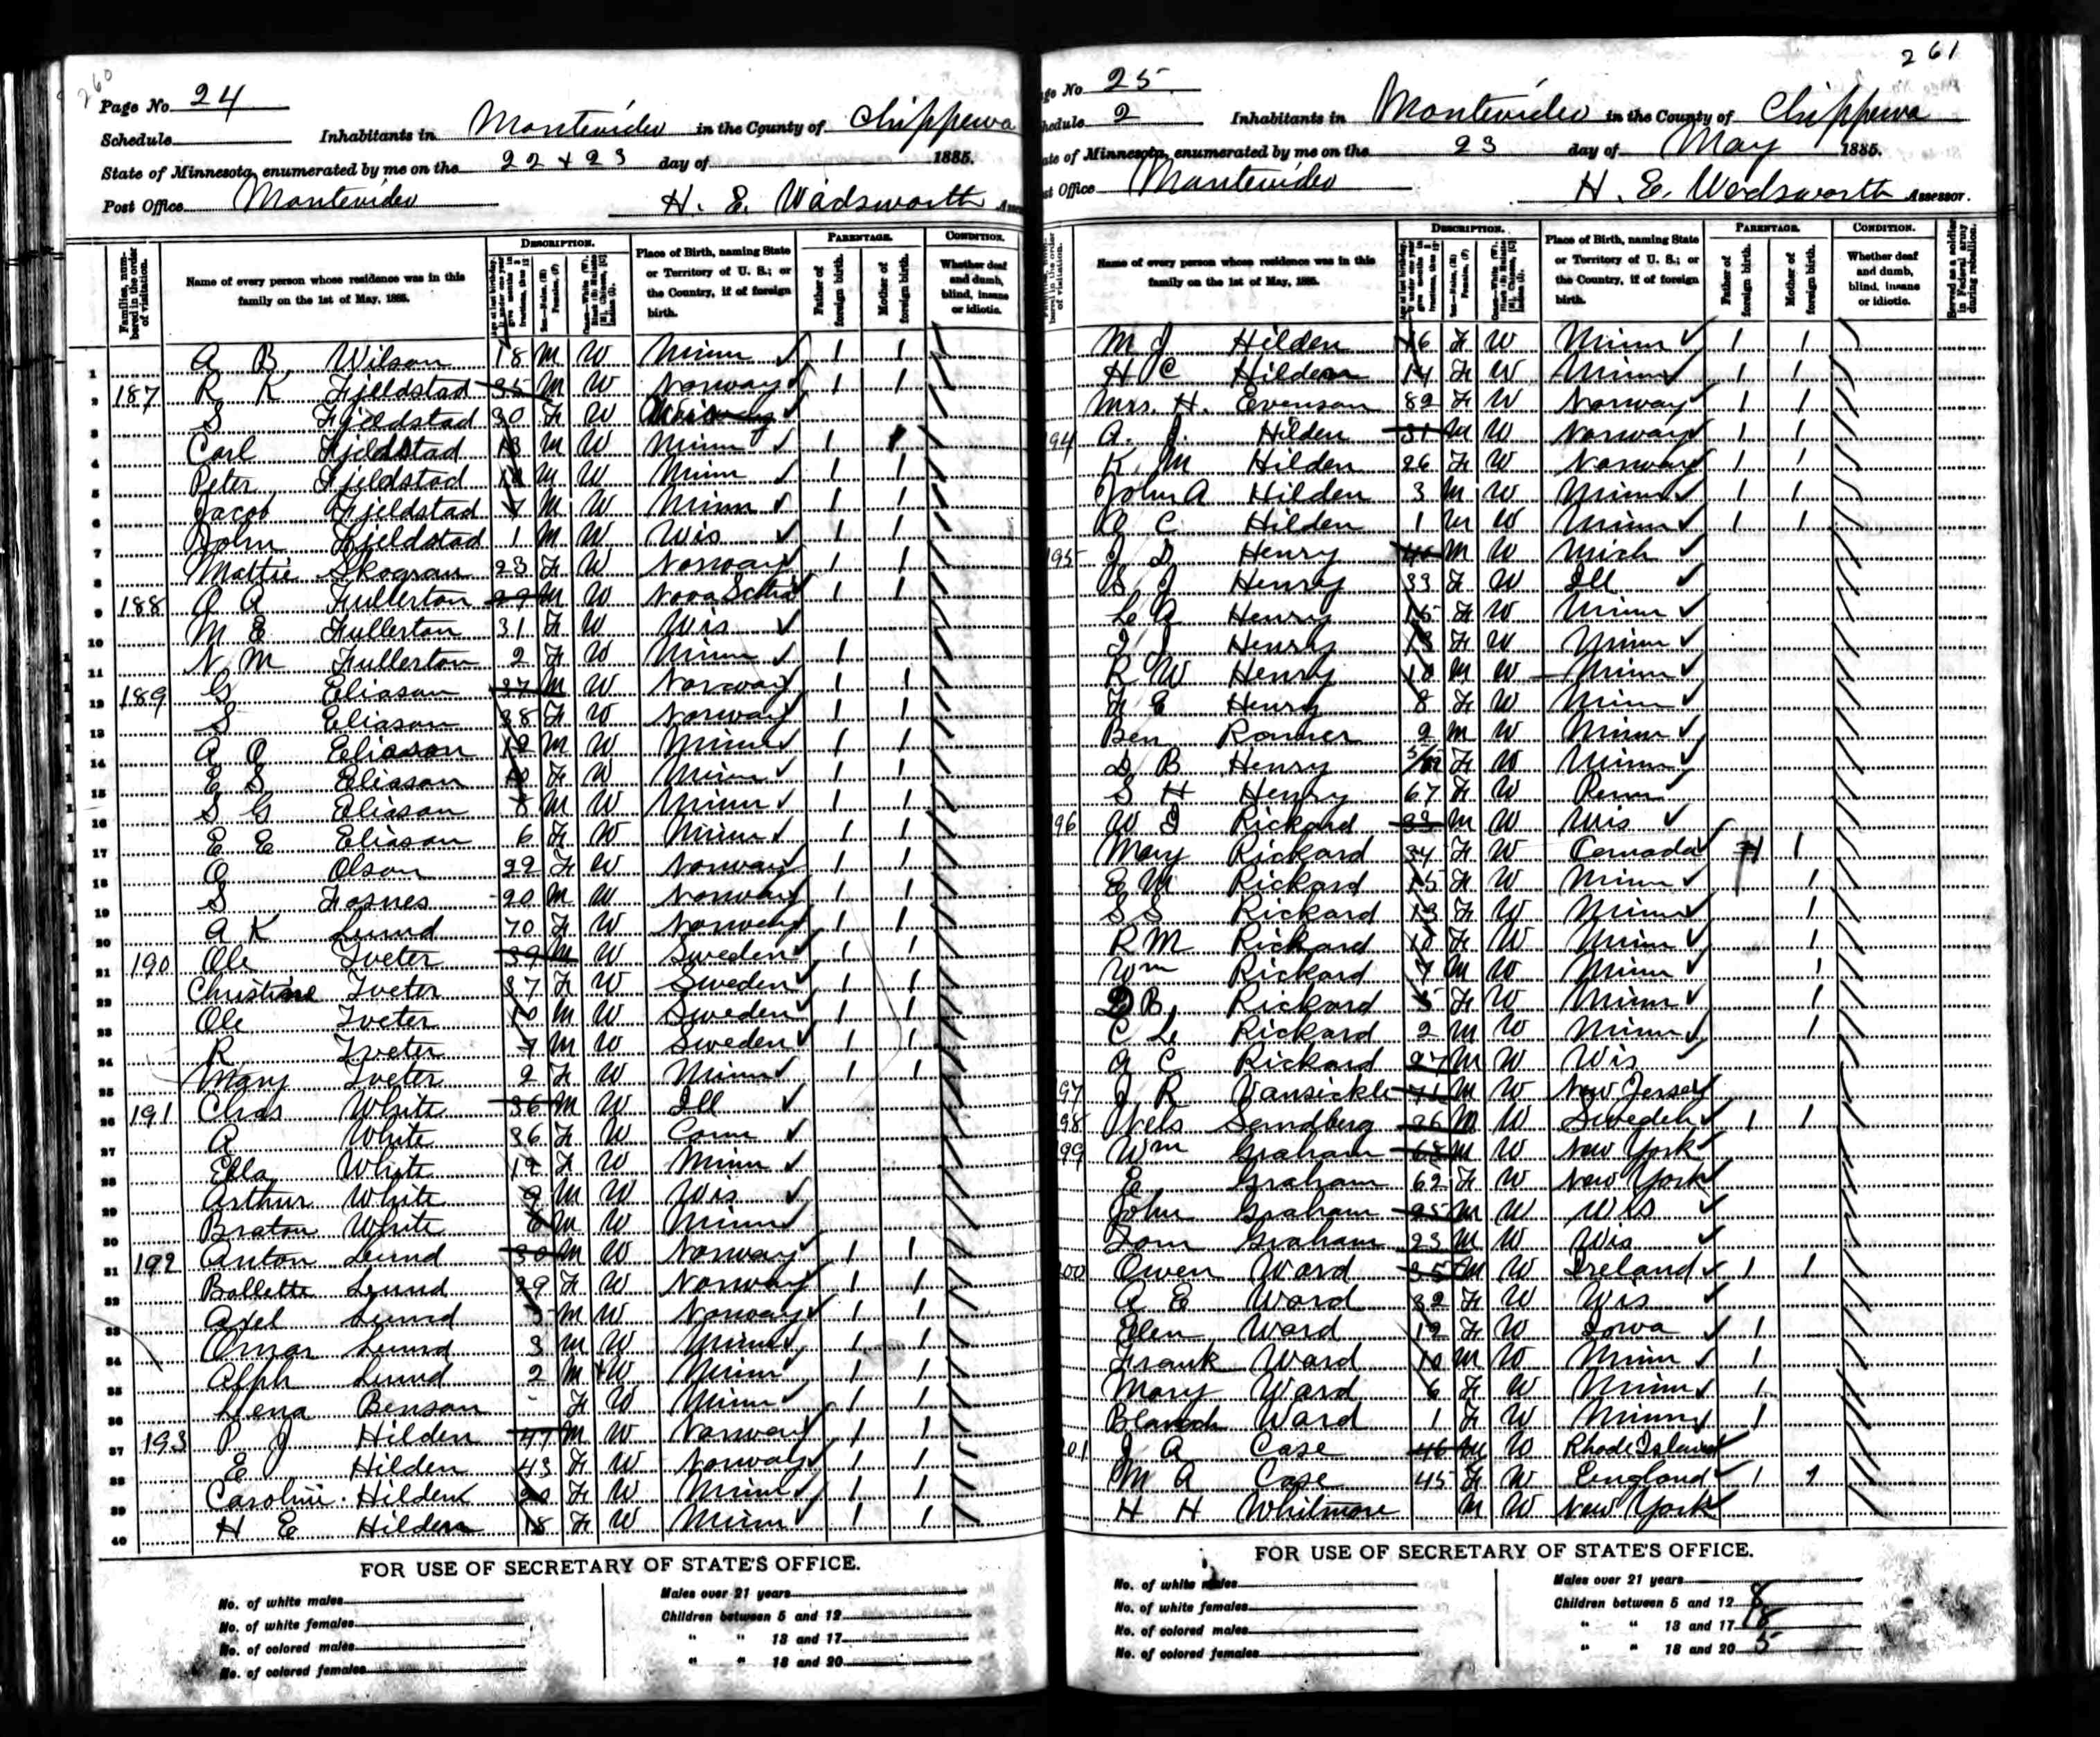 260
Page No. 24
Schedule Inhabitants in Montevideo in the County of Chippewa
State of Minnesota, enumerated by me on the 22 + 23 day of 1885.
Post Office Montevideo H. E. Wadsworth
Families, numbered in the order of visitation.
Name of every person whose residence was in this family on the 1st of May, 1885.
DESCRIPTION.
Place of Birth, naming State or Territory of U. S.; or the Country, if of foreign birth.
PARENTAGE.
Father of foreign birth.
Mother of foreign birth.
CONDITION.
Whether deaf and dumb, blind, insane or idiotic.
1 A B Wilson 18 M W Minn 1 1
2 187 R K Fjeldstad 35 M W Norway 1 1
3 S Fjeldstad 30 F W
4 Carl Fjeldstad 13 M W Minn 1 1
5 Peter Fjeldstad M W Minn 1 1
6 Jacob Fjeldstad 7 M W Minn 1 1
7 John Fjeldstad 1 M W Wis 1 1
8 Mattie Skogran 23 F W Norway 1 1
9 188 A A Fullerton 29 M W Nova Scotia 1 1
10 M E Fullerton 31 F W Wis
11 N M Fullerton 2 F W Minn 1
12 189 G Eliason 37 M W Norway 1 1
13 S Eliason 38 F W Norway 1 1
14 A O Eliason 12 M W Minn 1 1
15 E S Eliason 10 F W Minn 1 1
16 S G Eliason 8 M W Minn 1 1
17 E E Eliason 6 F W Minn 1 1
18 O Olson 22 F W Norway 1 1
19 S Fosnes 20 M W Norway 1 1
20 A K Lund 70 F W Norway 1 1
21 190 Ole Tveter 39 M W Sweden 1 1
22 Christine Tveter 37 F W Sweden 1 1
23 Ole Tveter 10 M W Sweden 1 1
24 R Tveter 7 M W Sweden 1 1
25 Mary Tveter 2 F W Minn 1 1
26 191 Chas White 36 M W Ill
27 A White 36 F W Conn
28 Ella White 12 F W Minn
29 Arthur White 9 M W Wis
30 Braton White 6 M W Minn
31 192 Anton Lund 30 M W Norway 1 1
32 Bollette Lund 29 F W Norway 1 1
33 Axel Lund 5 M W Norway 1 1
34 Omar Lund 3 M W Minn 1 1
35 Alph Lund 2 M W Minn 1 1
36 Lena Benson - F W Minn 1 1
37 193 P J Hilden 47 M W Norway 1 1
38 E Hilden 43 F W Norway 1 1
39 Caroline Hilden 20 F W Minn 1 1
40 H E Hilden 18 F W Minn 1 1
FOR USE OF SECRETARY OF STATE'S OFFICE.
No. of white males
No. of white females
No. of colored males
No. of colored females
Males over 21 years
Children between 5 and 12
" " 13 and 17
" " 18 and 20
261
Page No 25
Schedule 2 Inhabitants in Montevideo in the County of Chippewa
State of Minnesota, enumerated by me on the 23 day of May 1885.
Post Office Montevideo H. E. Wadsworth Assessor.
Name of every person whose residence was in this family on the 1st of May, 1885.
DESCRIPTION.
Place of Birth, naming State or Territory of U. S.; or the Country, if of foreign birth.
PARENTAGE.
Father of foreign birth.
Mother of foreign birth.
CONDITION.
Whether deaf and dumb, blind, insane or idiotic.
Served as a soldier in Federal army during rebellion.
M J Hilden 16 F W Minn 1 1
H C Hilden 14 F W Minn 1 1
Mrs. H. Evenson 82 F W Norway 1 1
194 A. J. Hilden 31 M W Norway 1 1
K M Hilden 26 F W Norway 1 1
John A Hilden 3 M W Minn 1 1
O C Hilden 1 M W Minn 1 1
195 J D Henry 40 M W Mich
S J Henry 33 F W Ill
L A Henry 15 F W Minn
I J Henry 13 F W Minn
R W Henry 10 M W Minn
F E Henry 8 F W Minn
Ben Romer 2 M W Minn
D B Henry 5/12 F W Minn
S H Henry 67 F W Penn
96 W I Rickard 33 M W Wis
Mary Rickard 34 F W Canada 1 1
E M Rickard 15 F W Minn 1
S S Rickard 13 F W Minn 1
R M Rickard 10 F W Minn 1
Wm Rickard 7 M W Minn 1
D B Rickard 5 F W Minn 1
C L Rickard 2 M W Minn 1
A C Rickard 27 M W Wis
97 J R Vansickle 71 M W New Jersey
98 Nels Sandberg 26 M W Sweden 1 1
99 Wm Graham 68 M W New York
E Graham 62 F W New York
John Graham 25 M W Wis
Tom Graham 23 M W Wis
200 Owen Ward 35 M W Ireland 1 1
A E Ward 32 F W Wis
Ellen Ward 12 F W Iowa 1
Frank Ward 10 M W Minn 1
Mary Ward 6 F W Minn 1
Blanch Ward 1 F W Minn 1
201 J A Case 46 M W Rhode Island
M A Case 45 F W England 1 1
H H Whitmore M W New York
FOR USE OF SECRETARY OF STATE'S OFFICE.
No. of white males
No. of white females
No. of colored males
No. of colored females
Males over 21 years
Children between 5 and 12 8
" " 13 and 17 18
" " 18 and 20 5